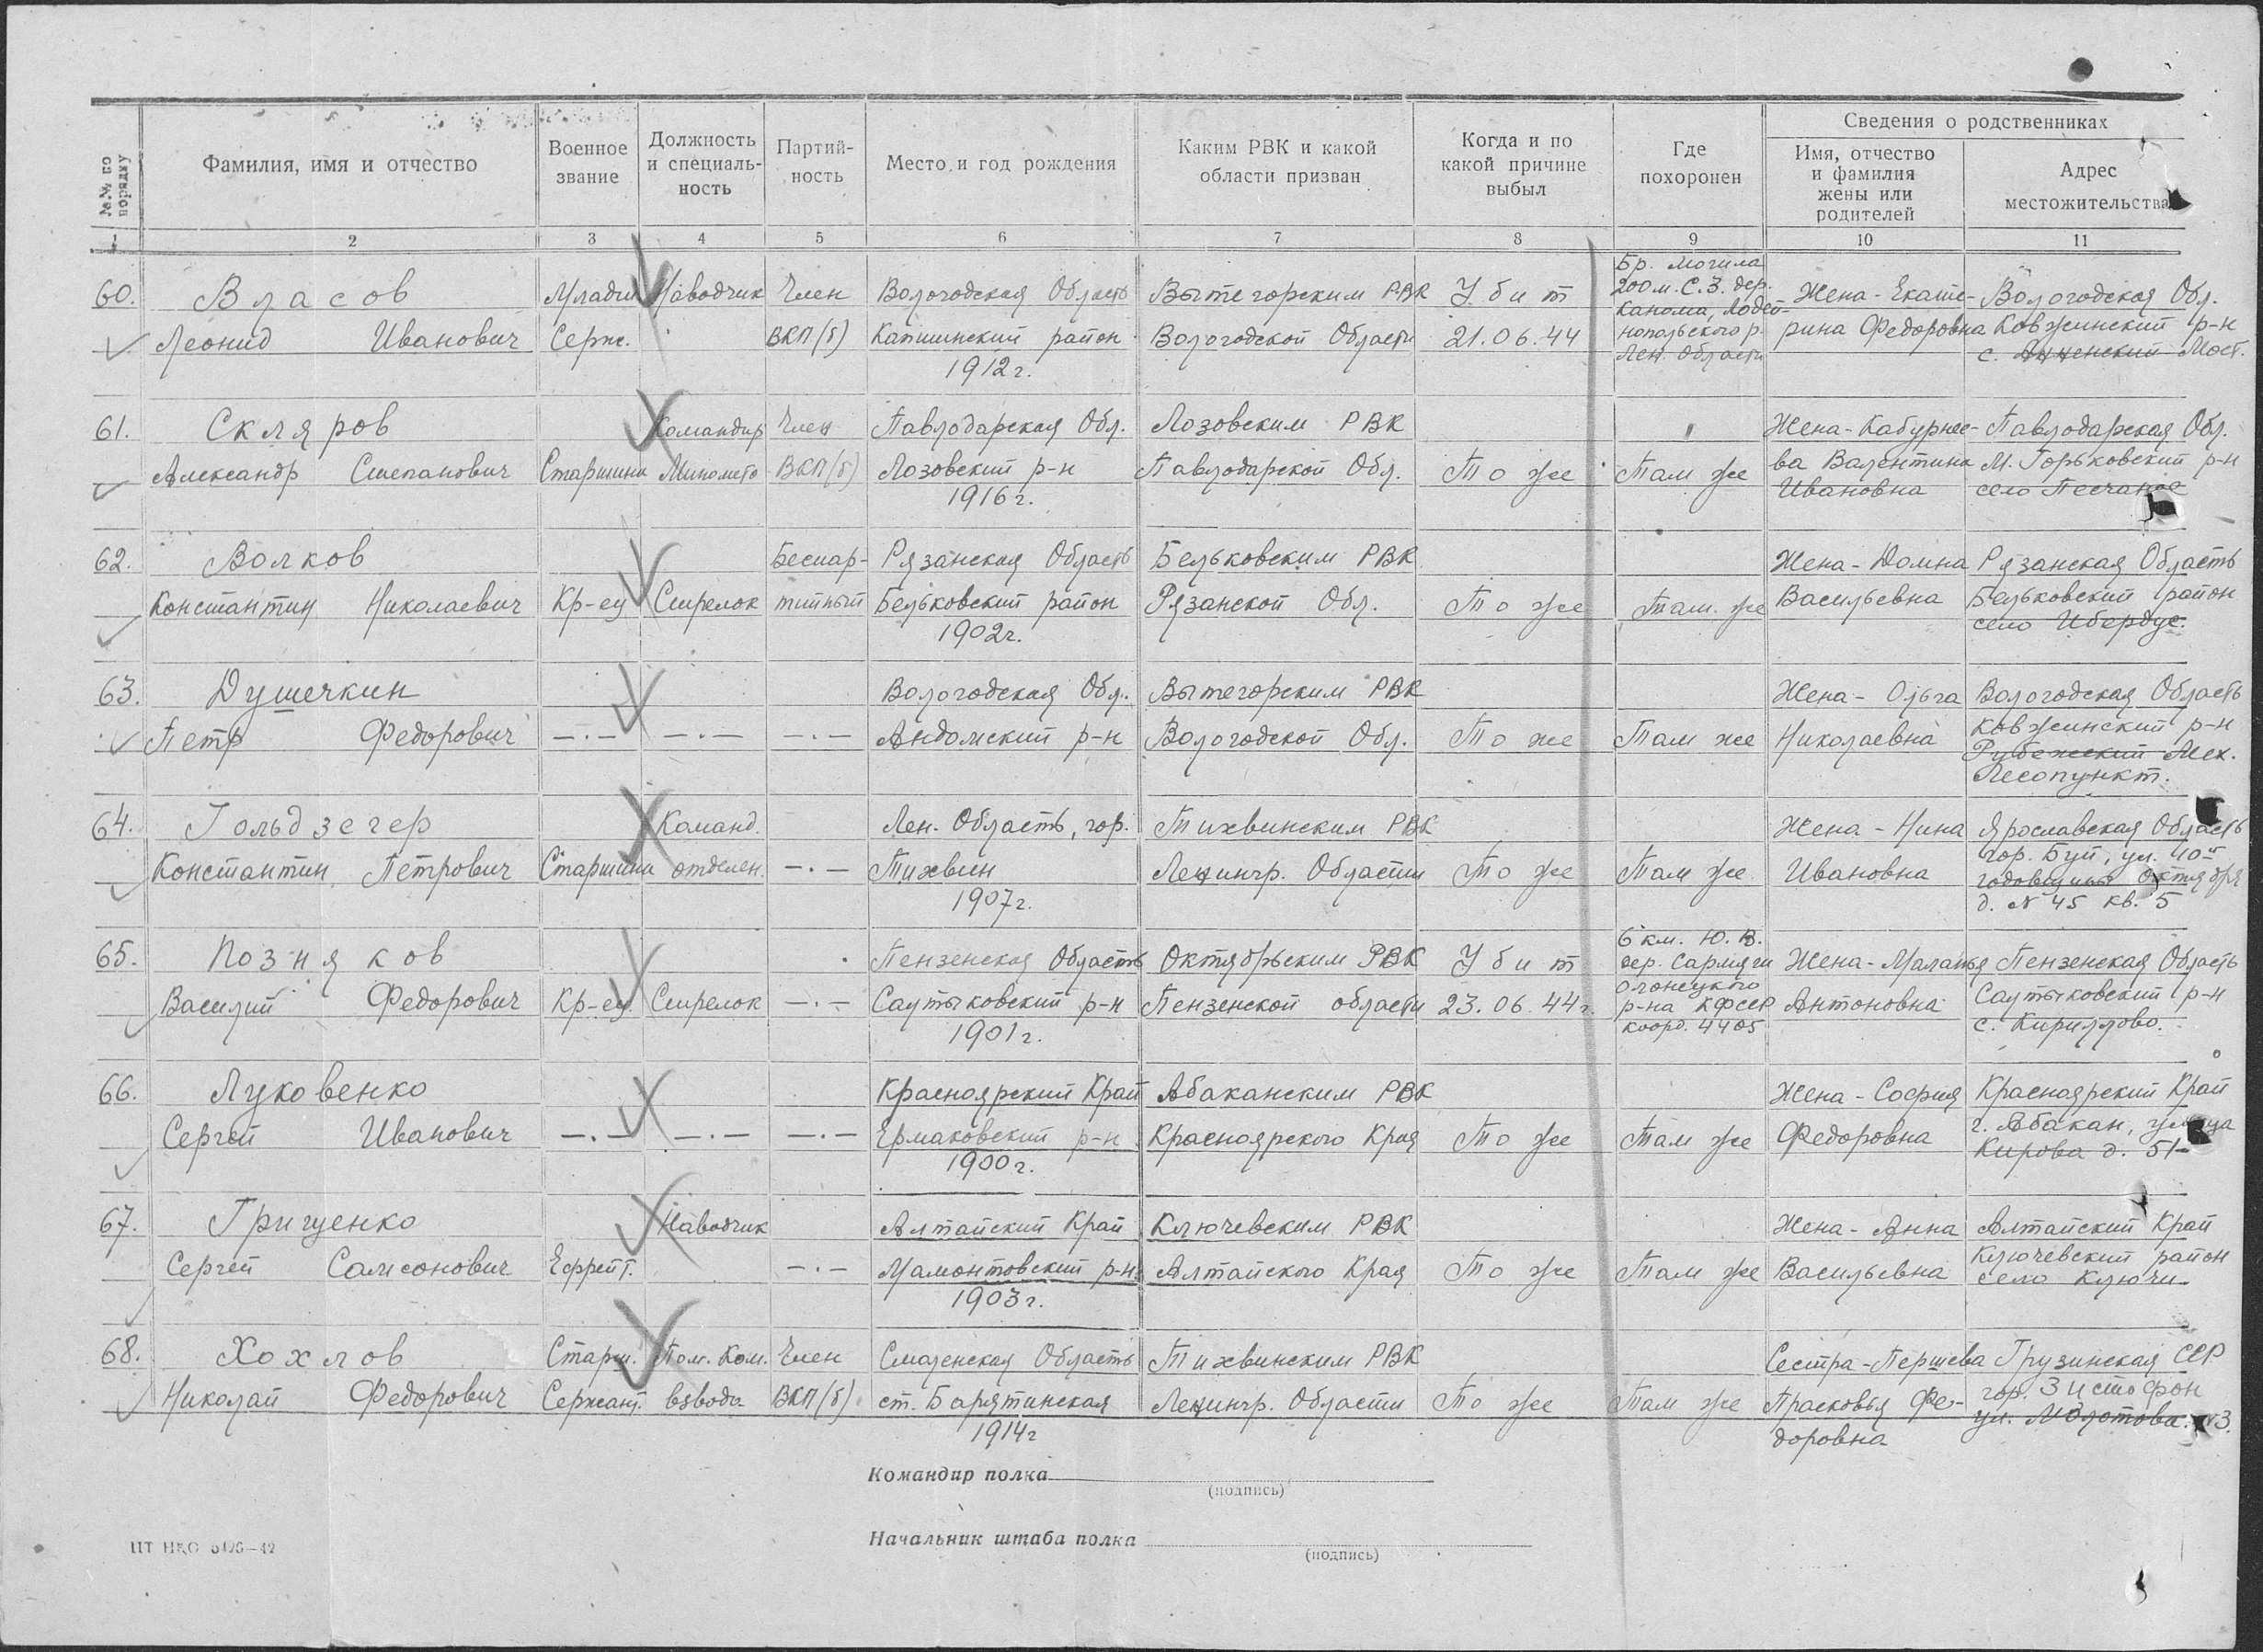 №№ по порядку
Фамилия, имя и отчество
Военное звание
Должность и специальность
Партийность
Место и год рождения
Каким РВК и какой области призван
Когда и по какой причине выбыл
Где похоронен
Сведения о родственниках
Имя, отчество и фамилия жены или родителей
Адрес местожительства
1 2 3 4 5 6 7 8 9 10 11
60. Власов Младш Наводчик Член Вологодская Область Вытегорским РВК Убит Бр. могила 200 м. С.З. дер. Жена - Екате- Вологодская Обл.
Леонид Иванович Серж. ВКП(б) Капшинский район Вологодской Области 21.06.44 Канома, Лодей- нопольского р. рина Федоровна Ковжинский р-н
1912 г. Лен. Области с. Анненский Мост.
61. Скляров Командир Член Павлодарская Обл. Лозовским РВК Жена - Кабурнее- Павлодарская Обл.
Александр Степанович Старшина Миномето ВКП(б) Лозовский р-н Павлодарской Обл. То же Там же ва Валентина М. Горьковский р-н
1916 г. Ивановна село Песчаное
62. Волков Беспар- Рязанская Область Бельковским РВК Жена - Домна Рязанская Область
Константин Николаевич Кр-ец Стрелок тийный Бельковский район Рязанской Обл. То же Там же Васильевна Бельковский район
1902 г. село Ибердус.
63. Душечкин Вологодская Обл. Вытегорским РВК Жена - Ольга Вологодская Область
Петр Федорович —.— —.— —.— Андомский р-н Вологодской Обл. То же Там же Николаевна Ковжинский р-н
Рубежский Мех.
Лесопункт.
64. Гольдзегер Команд. Лен. Область, гор. Тихвинским РВК Жена - Нина Ярославская Область
Константин Петрович Старшина отделен. —.— Тихвин Ленингр. Области То же Там же Ивановна гор. Буй, ул. 10ой
годовщины Октября
1907 г. д. N 45 кв. 5
65. Позняков Пензенская Область Октябрьским РВК Убит 6 км. Ю.В. дер. Сармяги Жена - Маланья Пензенская Область
Василий Федорович Кр-ец. Стрелок —.— Салтыковский р-н Пензенской области 23.06.44 г. Олонецкого р-на КФССР Антоновна Салтыковский р-н
1901 г. коорд. 4405 с. Кириллово.
66. Луковенко Красноярский Край Абаканским РВК Жена - София Красноярский Край
Сергей Иванович —.— —.— —.— Ермаковский р-н Красноярского Края То же Там же Федоровна г. Абакан, улица
1900 г. Кирова д. 51
67. Грищенко Наводчик Алтайский Край Ключевским РВК Жена - Анна Алтайский Край
Сергей Самсонович Ефрейт. —.— Мамонтовский р-н Алтайского Края То же Там же Васильевна Ключевский район
1903 г. село Ключи
68. Хохлов Старш. Пом. Ком. Член Смоленская Область Тихвинским РВК Сестра - Першева Грузинская ССР
Николай Федорович Сержант. взвода ВКП(б) ст. Барятинская Ленингр. Области То же Там же Прасковья Фе- гор. Зистофон
ул. Молотова. N3.
1914 г доровна
Командир полка
(подпись)
Начальник штаба полка
(подпись)